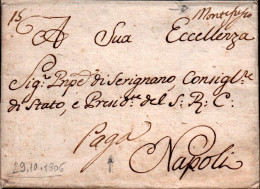 15 Montefusco
A Sua Eccellenza
Sig.r Pnpe di Serignano, Consigl.re
di Stato, e Presid.te del S. R. C.
Paga Napoli
29.10.1806